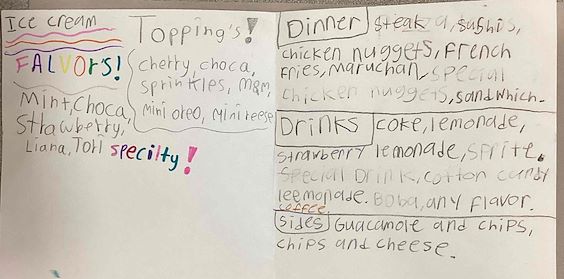 Ice cream
FALVOrS!
Mint, Choca,
Strawberry,
Liana, Tori specilty!
Topping's!
cherry, choca,
sprinkles, M&M,
mini oreo, mini reese
Dinner steak, sushis,
chicken nuggets, French
Fries, Maruchan, special
chicken nuggets, sandwhich.
Drinks coke, lemonade,
strawberry lemonade, sprite.
special Drink, cotton candy
leemonade. Boba, any flavor.
coffee
sides Guacamole and chips,
chips and cheese.